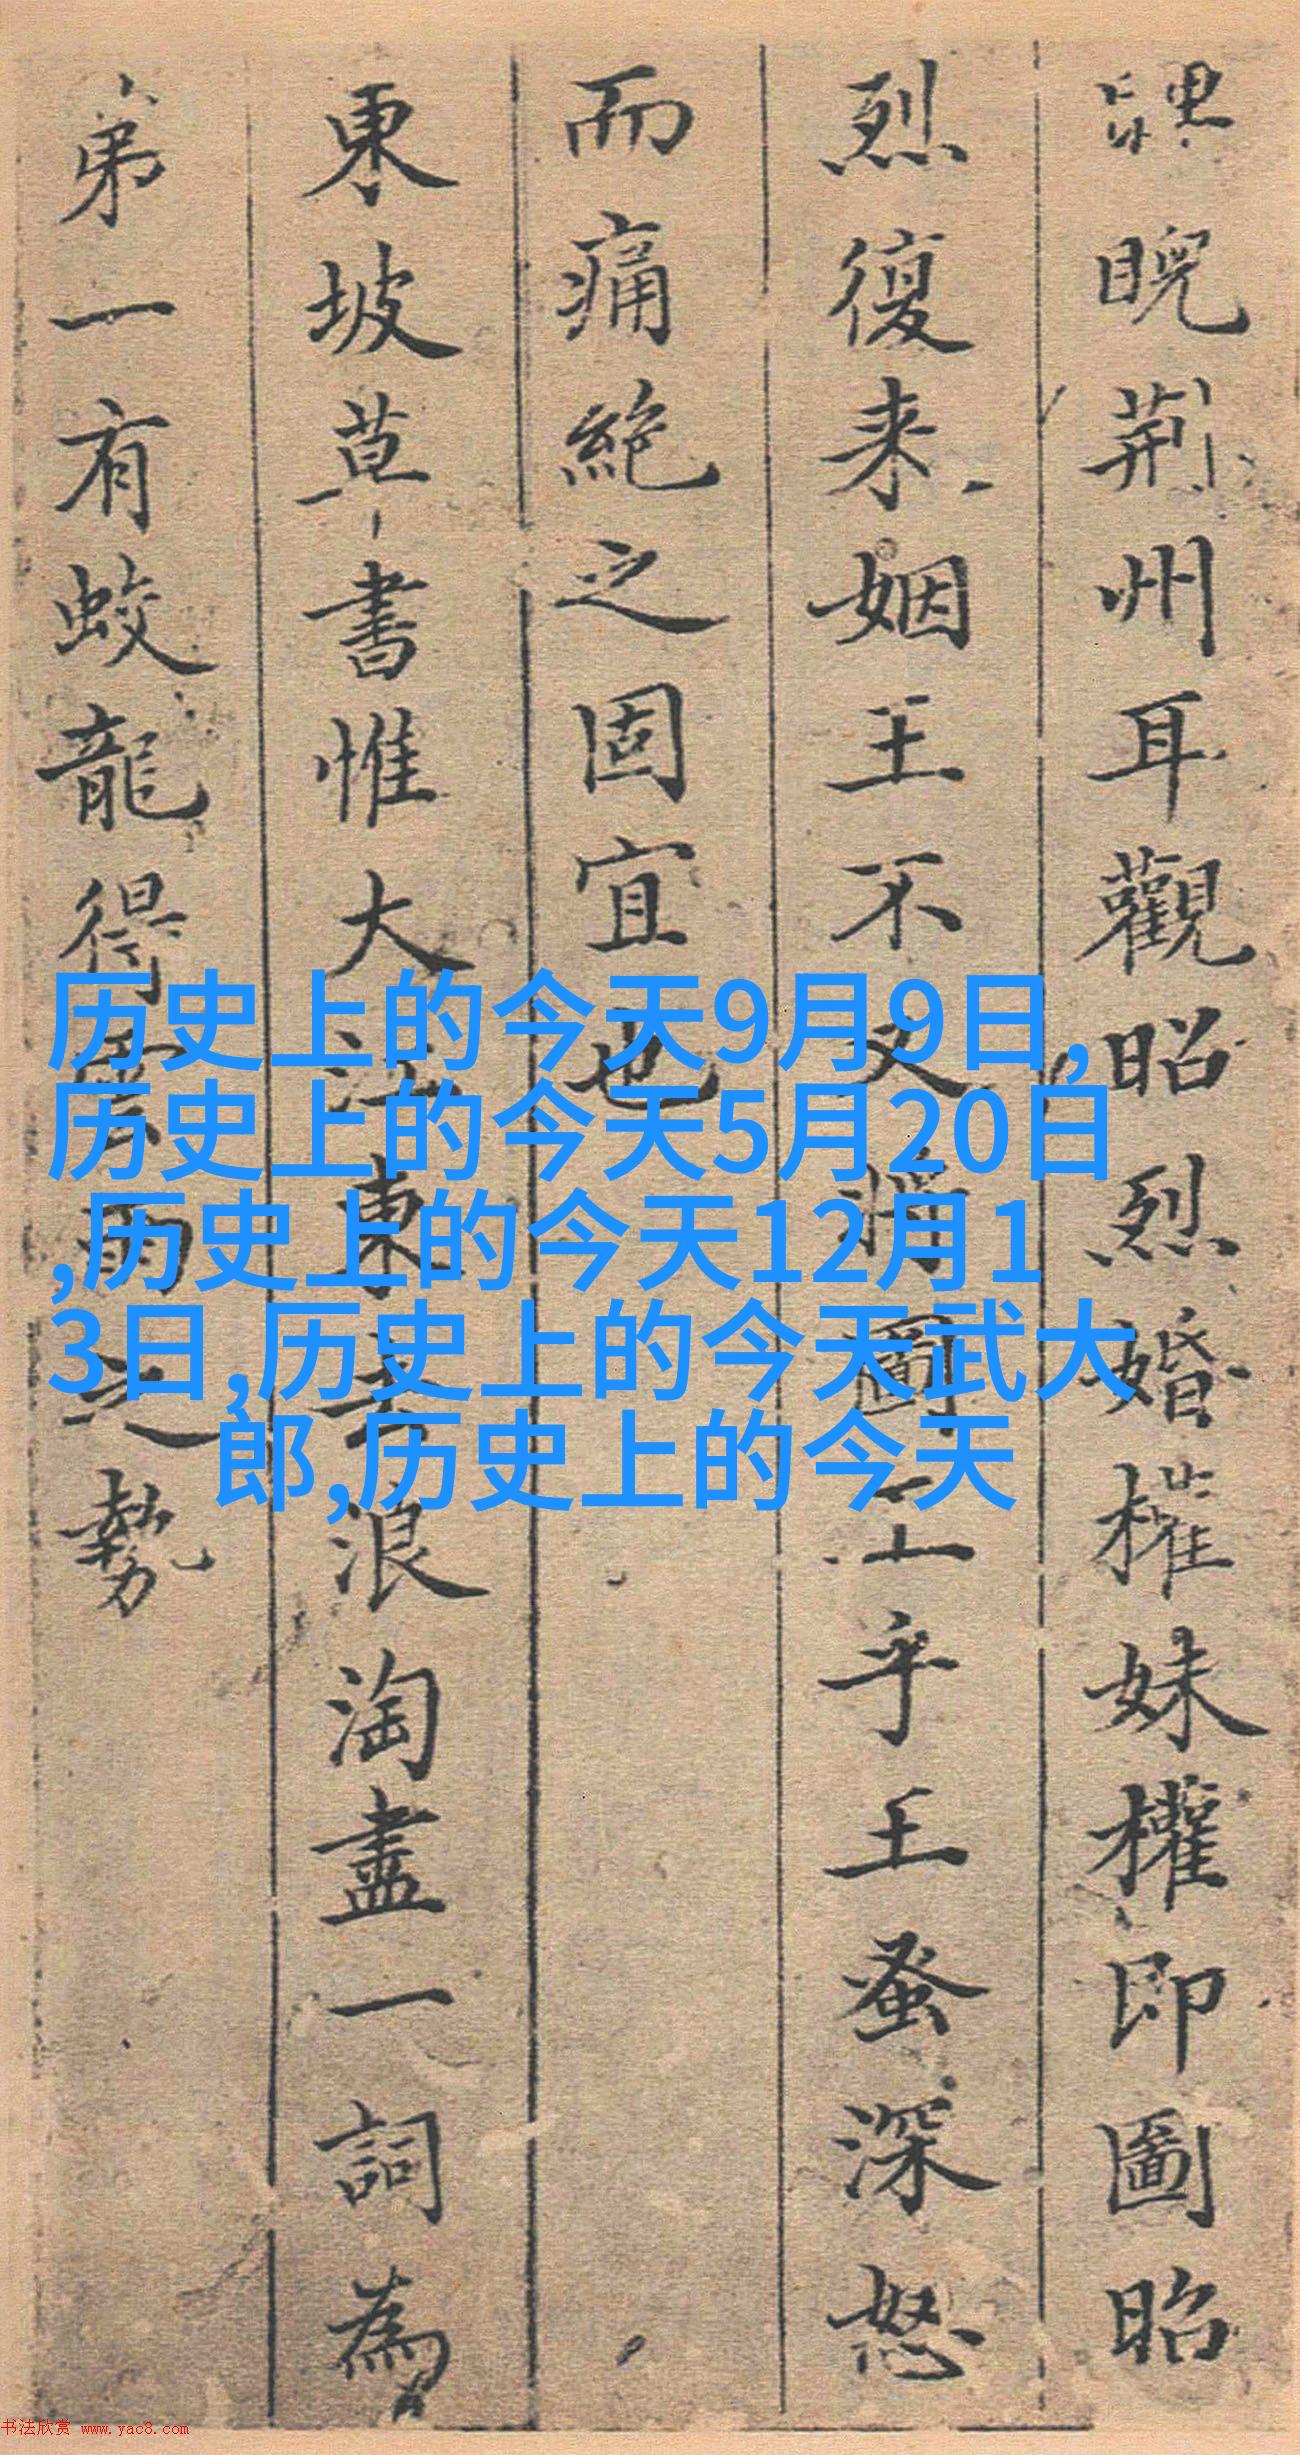 睨荆州耳觀昭烈婚權妹權即圖昭
烈復来姻王不又將圖王乎王蚤深怒
而痛絶之固宜也
東坡草書惟大江東去浪淘盡一詞為
弟一有蛟龍得雲雨之勢
历史上的今天9月9日,
历史上的今天5月20日
,历史上的今天12月1
3日,历史上的今天武大
郎,历史上的今天
书法欣赏 www.yac8.com